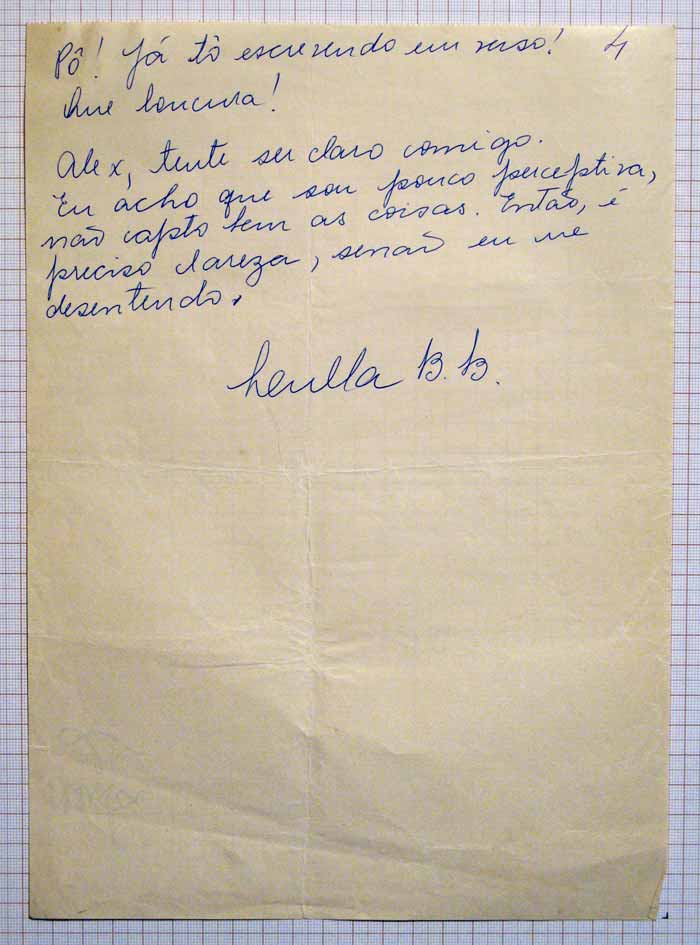 Pô! Já tô escrevendo em verso! 4
Que loucura!
Alex, tente ser claro comigo.
Eu acho que sou pouco perceptiva,
não capto bem as coisas. Então, é
preciso clareza, senão eu me
desentendo.
B.B.